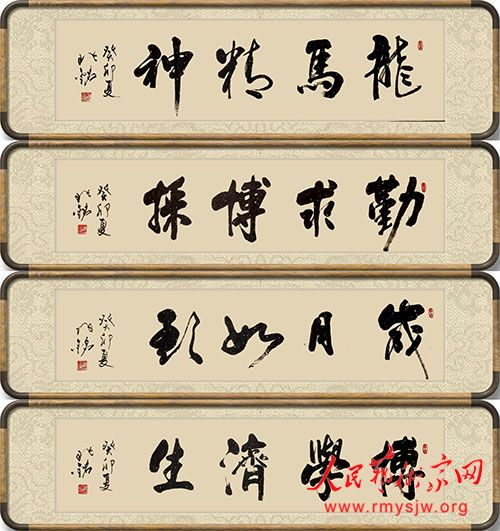 龍馬精神
癸卯夏
勤求博採
癸卯夏
歲月如歌
癸卯夏
博學濟生
癸卯夏
人民艺术家网
www.rmysjw.org